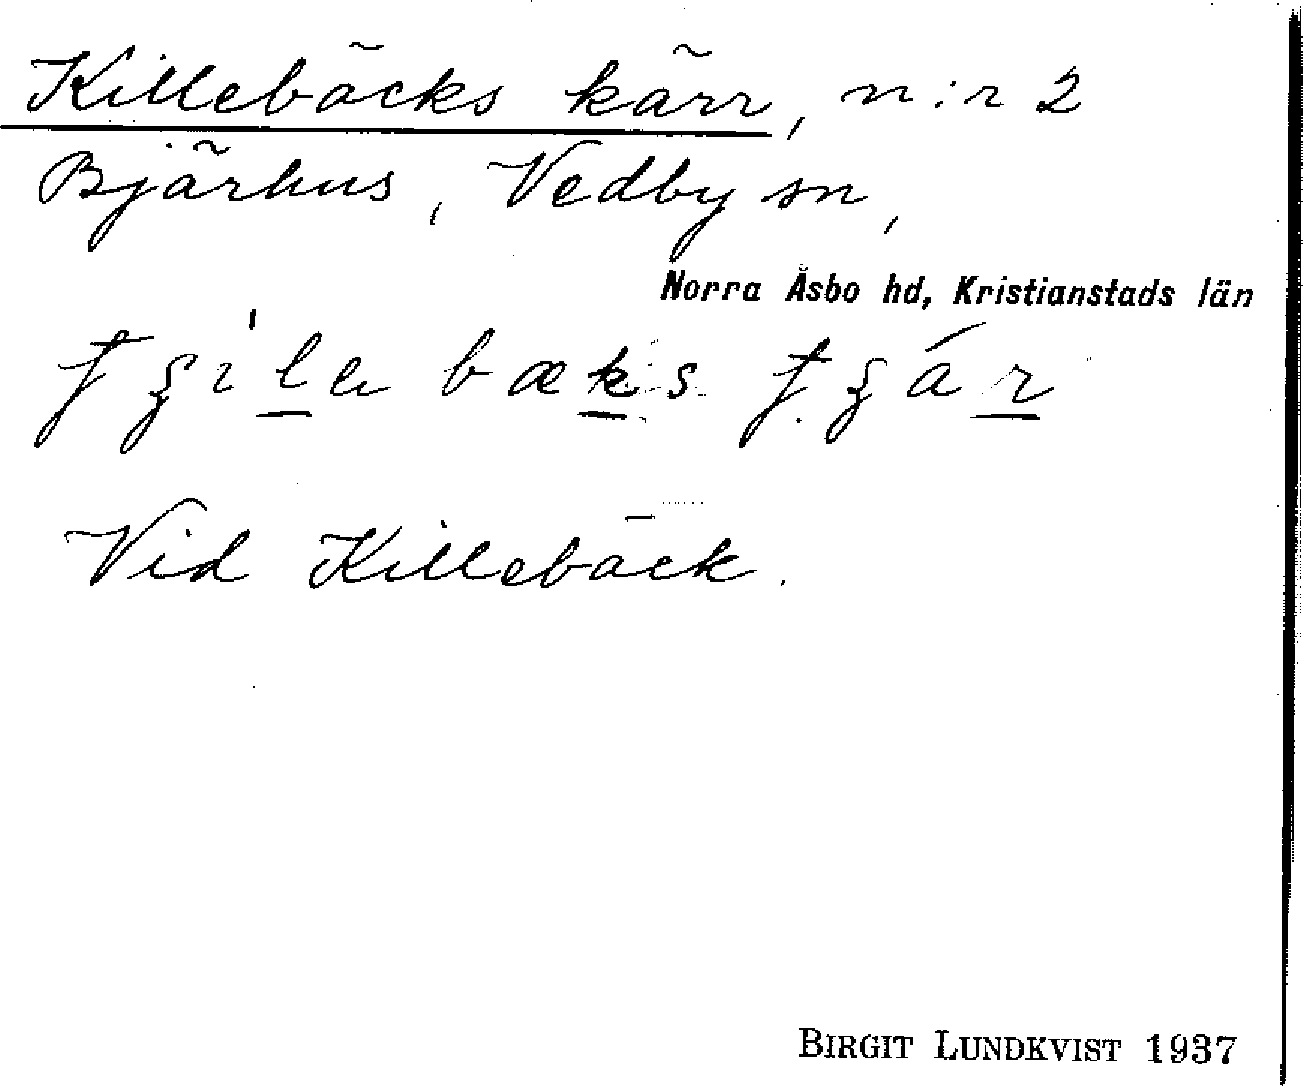 Killebäcks kärr, n:r 2
Bjärhus, Vedby sn,
Norra Åsbo hd, Kristianstads län
Vid Killebäck.
BIRGIT LUNDKVIST 1937